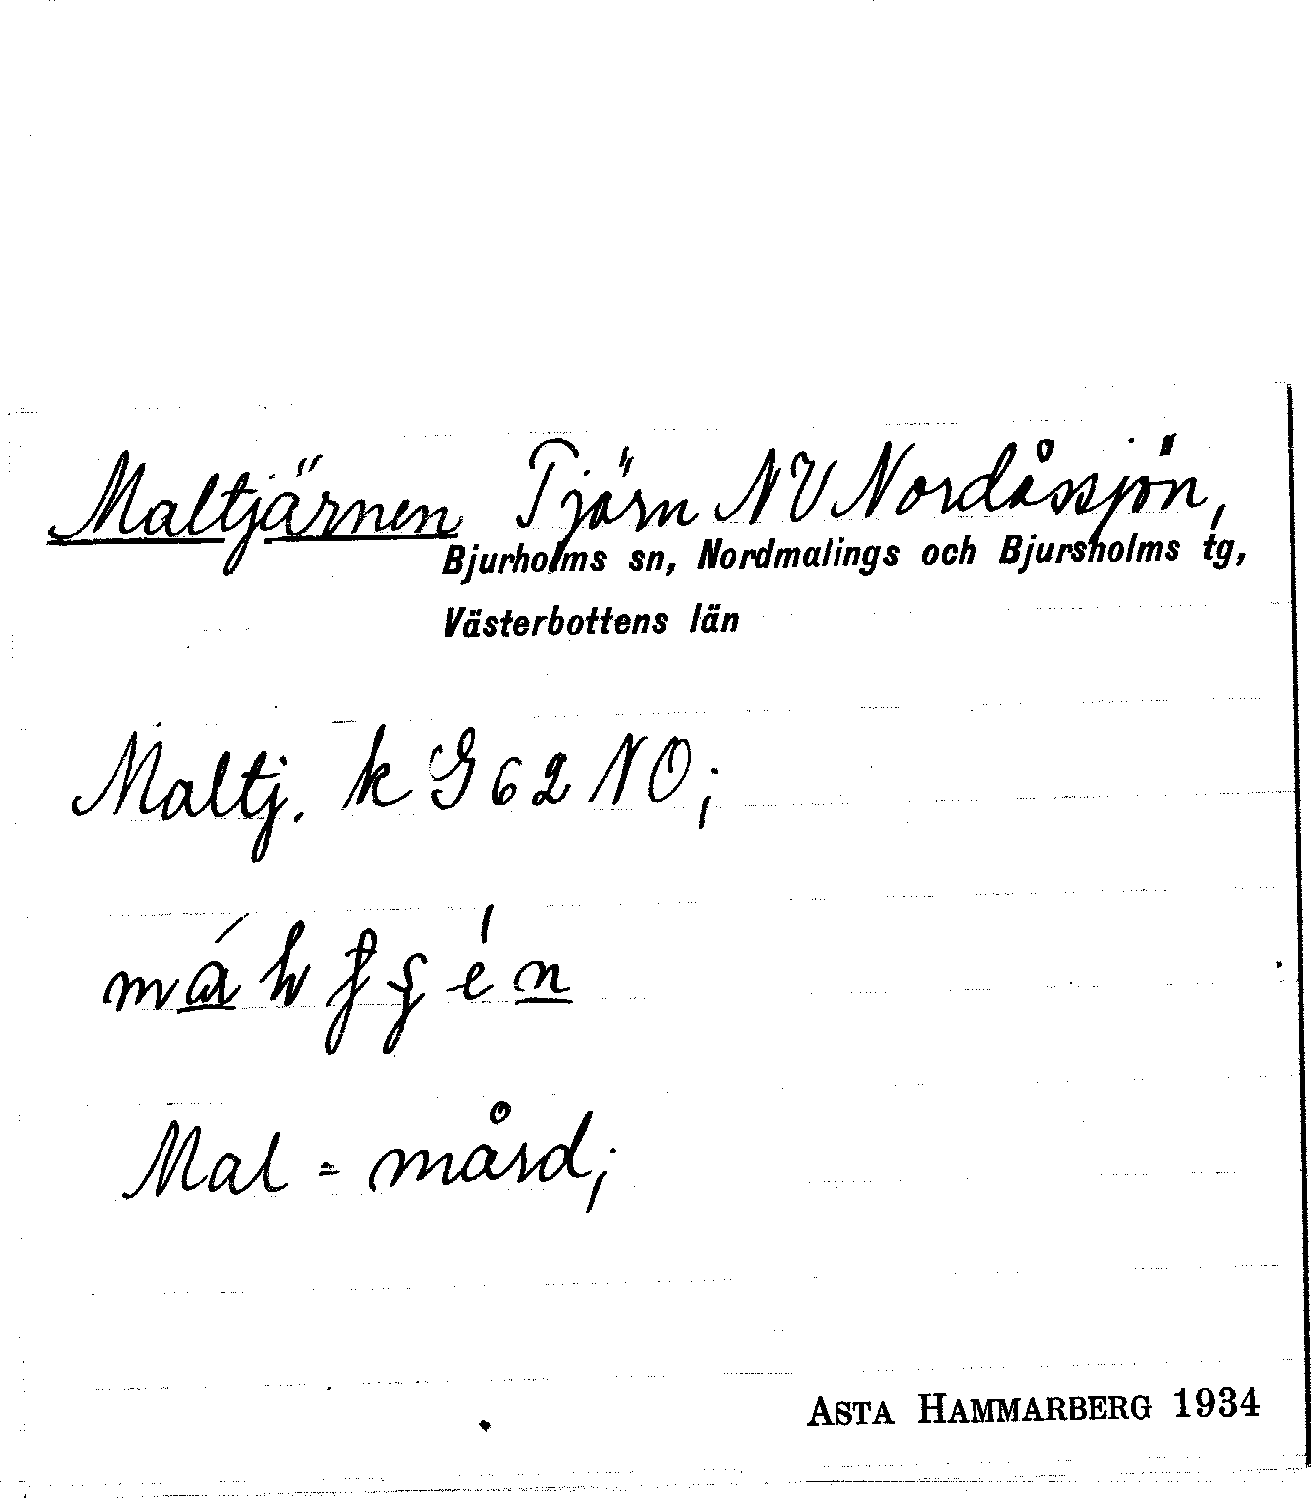 Maltjärnen Tjärn NV Nordåssjön,
Bjurholms sn, Nordmalings och Bjursholms tg,
Västerbottens län
Maltj. k G 62 NO;
Mal = mård;
ASTA HAMMARBERG 1934